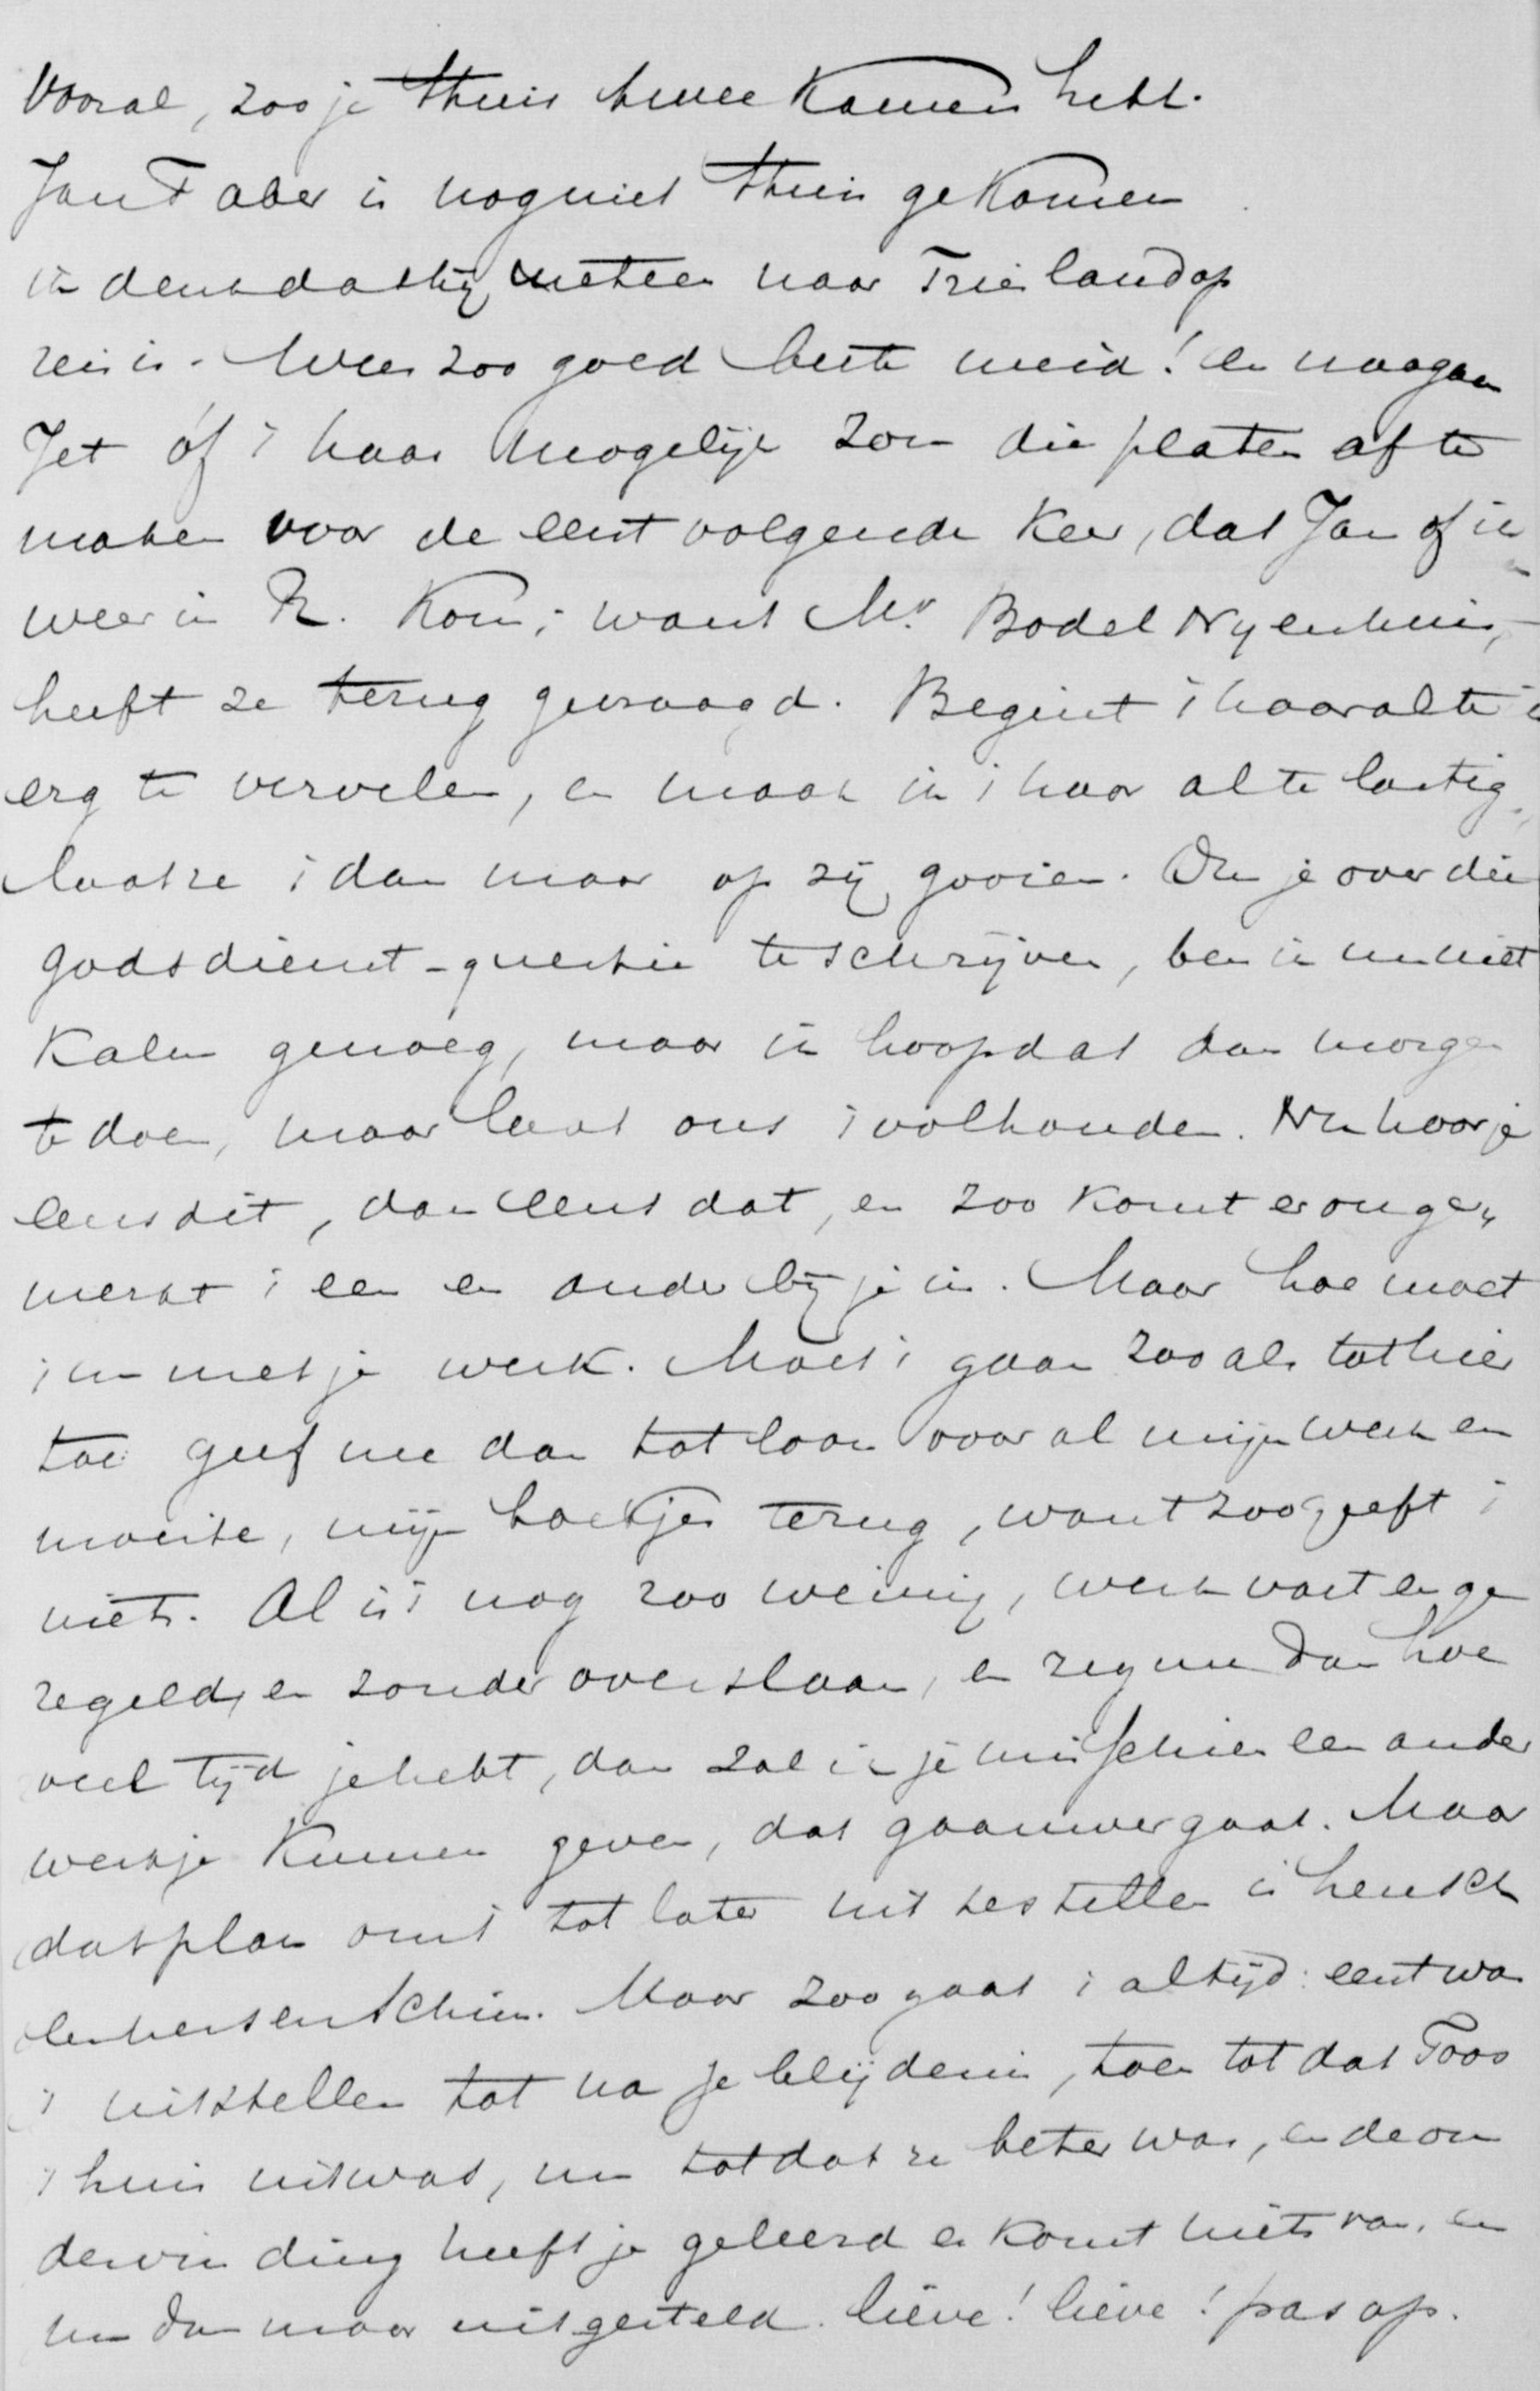 Vooral, zoo je thuis twee kamers hebt.
Jan Faber is nog niet thuis gekomen
ik denk dat hij meteen naar Frieslandop
reis is. Wees zoo goed beste meid! en vraag aan
Jet óf 't haar mogelijk zou die platen af te
maken voor de eerst volgende keer, dat Jan of ik
weer in R. kom; want Mr. Bodel Nyenhuis,
heeft ze terug gevraagd. Begint 't haar al te
erg te vervelen, en maak ik 't haar al te lastig,
laat ze 't dan maar op zij gooien. Om je over die
godsdienst-questie te schrijven, ben ik nu niet
kalm genoeg, maar ik hoop dat dan morgen
te doen, maar laat ons 't volhouden. Nu hoor je
eens dit, dan eens dat, en zoo komt er onge„
merkt 't een en ander bij je in. Maar hoe moet
't nu met je werk. Moet 't gaan zoo als tot hier
toe geef me dan tot loon voor al mijn werk en
moeite, mijn boekjes terug, want zoo geeft 't
niets. Al is 't nog zoo weinig, werk vast en ge
regeld, en zonder overslaan, en zeg me dan hoe
veel tijd je hebt, dan zal ik je misschien een ander
werkje kunnen geven, dat gaauwer gaat. Maar
dat plan om 't tot later uit te stellen is heusch
een hersenschim. Maar zoo gaat 't altijd: eerst was
't uitstellen tot na je belijdenis, toen tot dat Toos
't huis uit was, nu tot dat ze beter was, en de on
dervinding heeft je geleerd er komt niets van, en
nu dan maar uitgesteld. lieve! lieve! pas op.